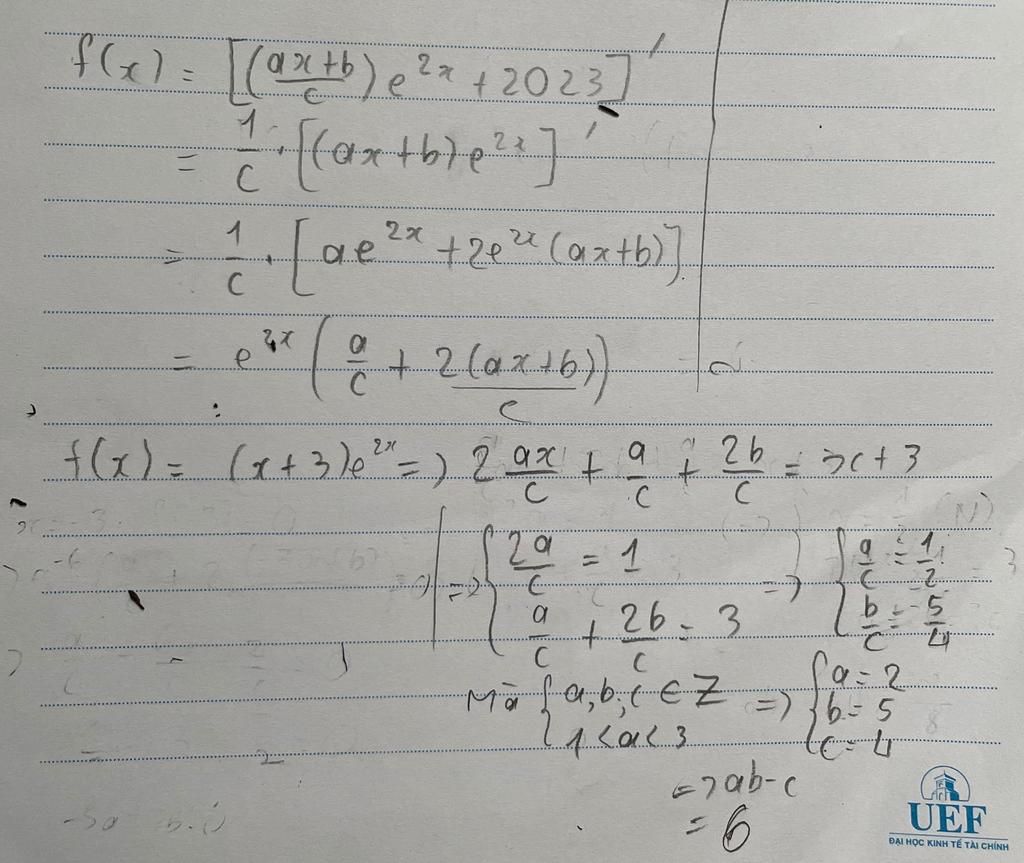 f(x) = [((ax+b)/c) e^{2x} + 2023]'
= 1/c · [(ax+b) e^{2x}]'
= 1/c · [ae^{2x} + 2e^{2x}(ax+b)]
= e^{2x} (a/c + 2(ax+b)/c)
f(x) = (x+3)e^{2x} => 2 ax/c + a/c + 2b/c = x + 3
=> { 2a/c = 1 ; a/c + 2b/c = 3 => { a/c = 1/2 ; b/c = 5/4
Mà { a, b, c ∈ Z ; 1 < a < 3 => { a = 2 ; b = 5 ; c = 4
=> ab - c
= 6
UEF
ĐẠI HỌC KINH TẾ TÀI CHÍNH